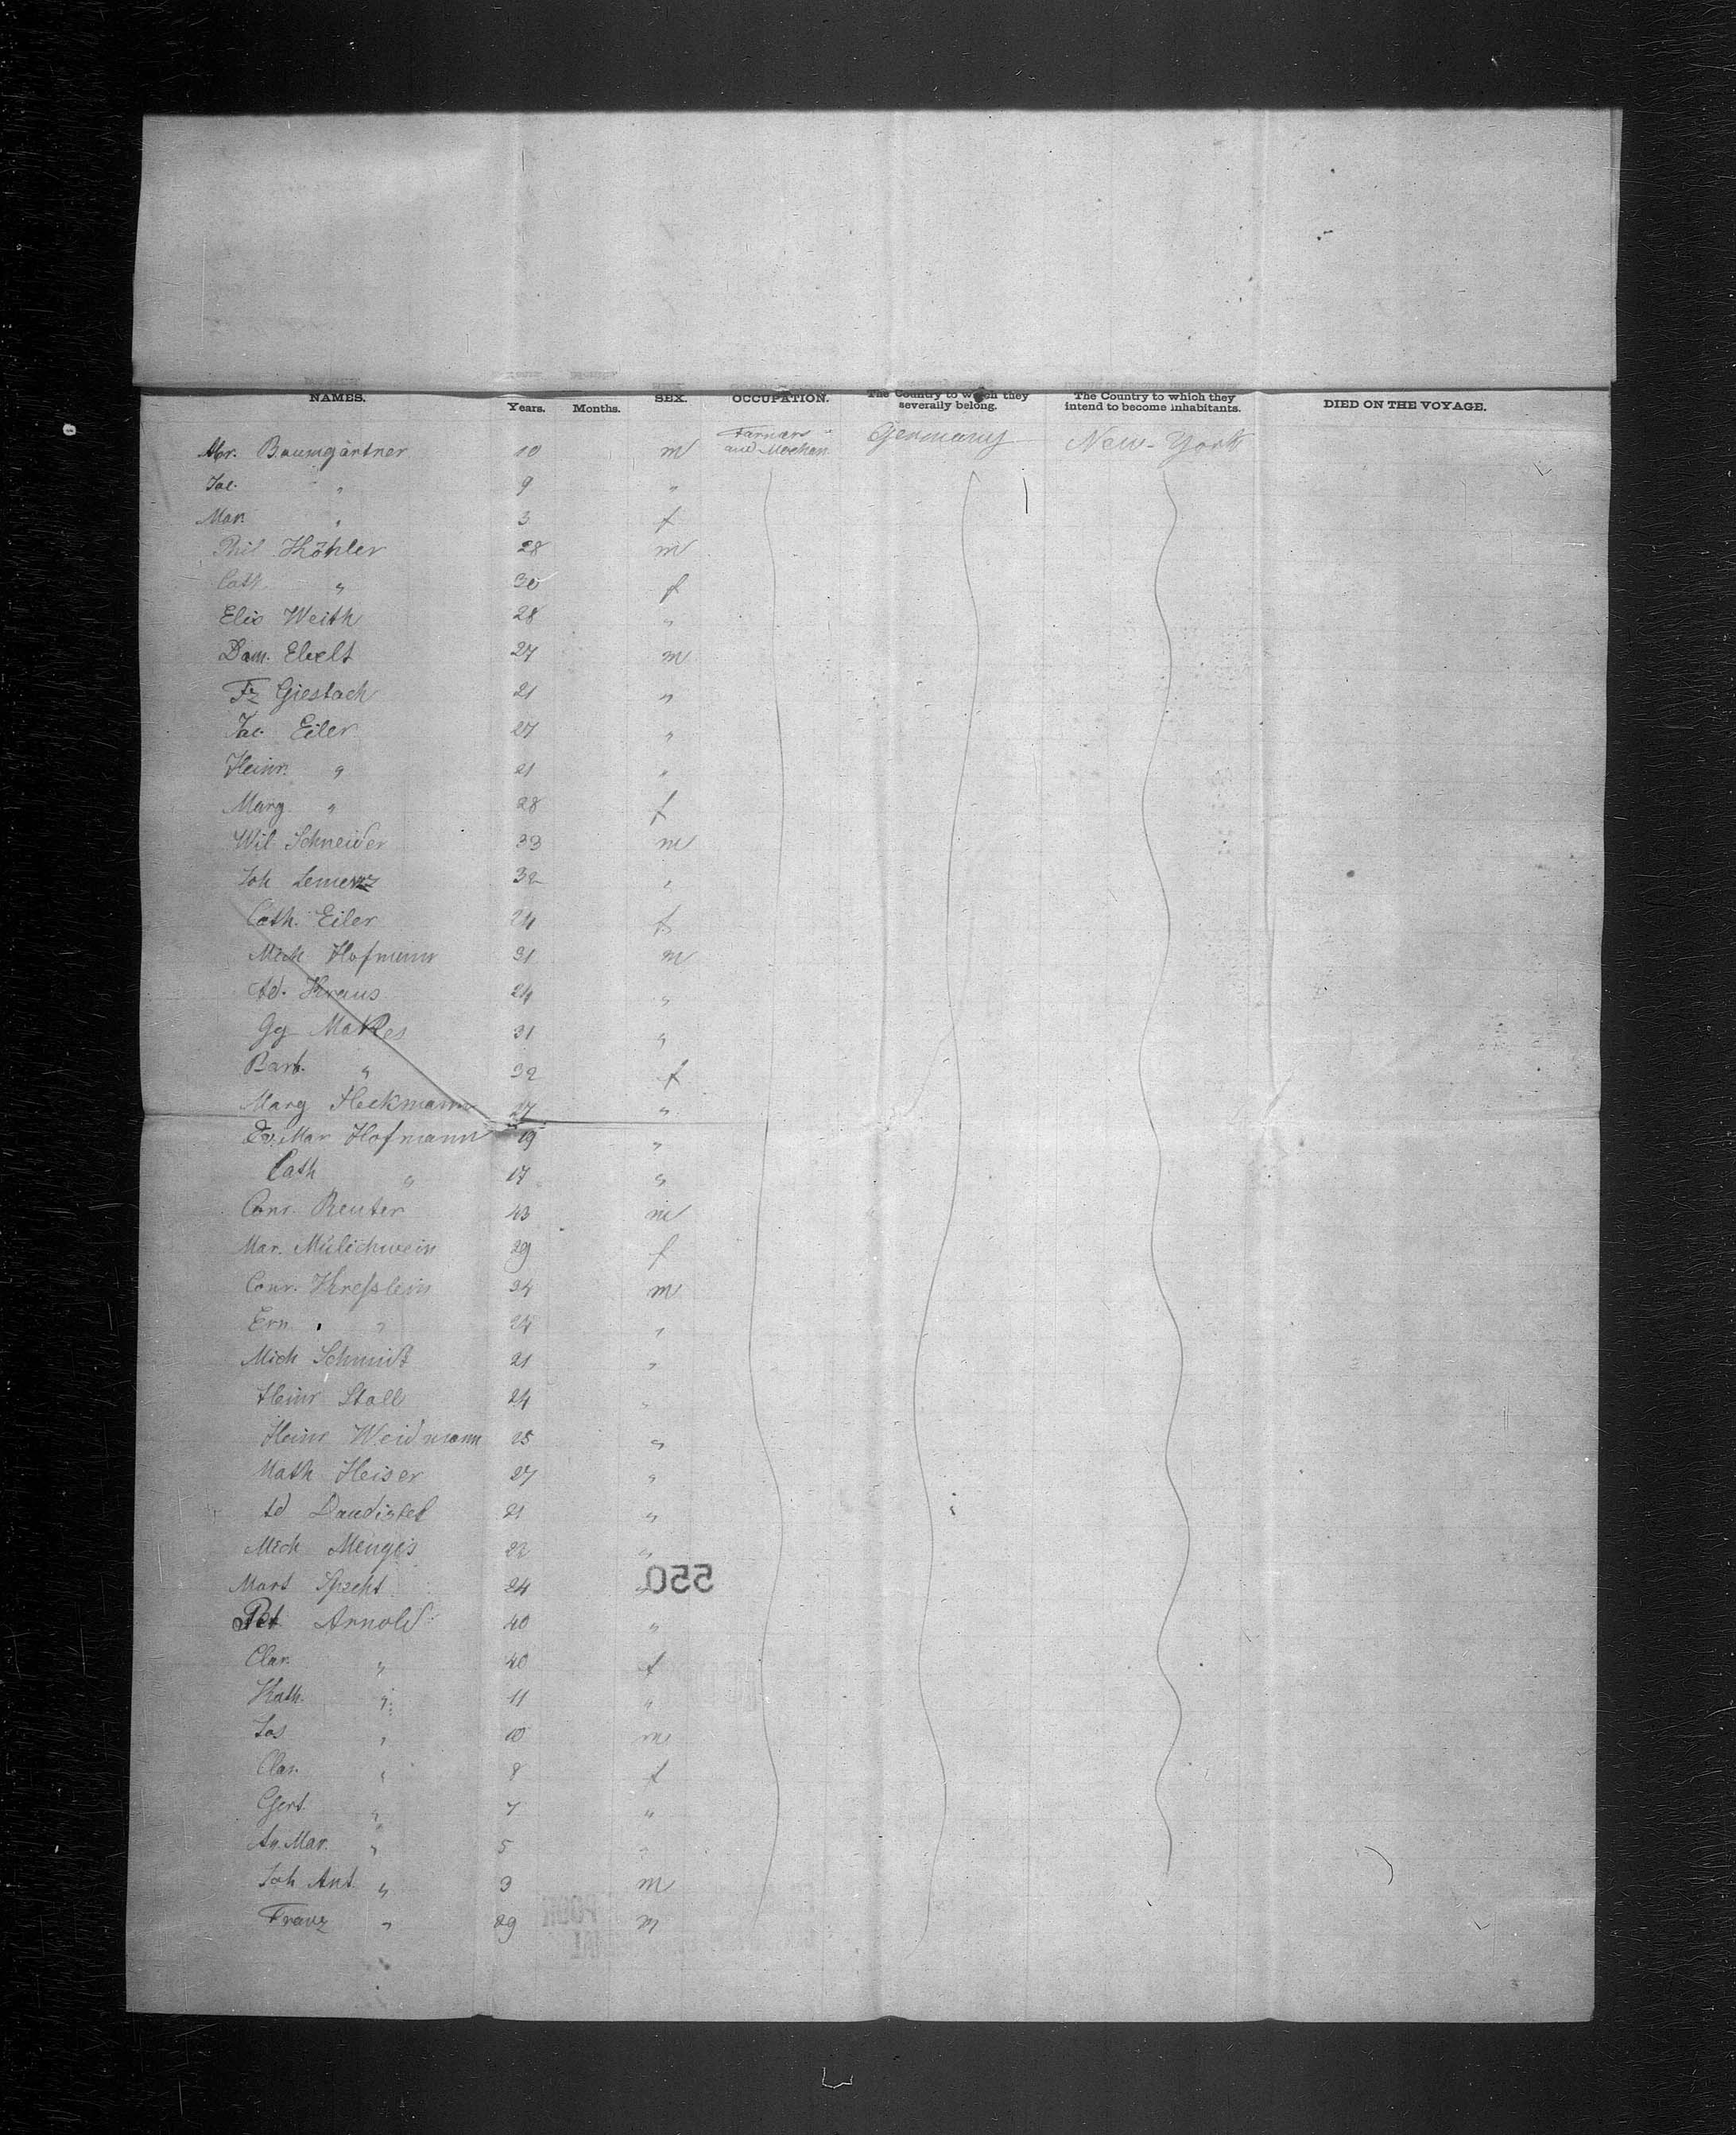 NAMES. Years. Months. SEX. OCCUPATION. The Country to which they severally belong. The Country to which they intend to become inhabitants. DIED ON THE VOYAGE.
Abr. Baumgärtner 10 m Farmers and Mechan. Germany New-York
Jac. " 9 "
Mar. " 3 f
Phil Köhler 28 m
Cath. " 30 f
Elis Weith 28 "
Dam. Ebelt 27 m
Fz Giesbach 21 "
Jac. Eiler 27 "
Heinr. " 21 "
Marg. " 28 f
Wil Schneider 33 m
Joh Lemenz 32 "
Cath. Eiler 24 f
Mich Hofmann 31 m
Ad. Kraus 24 "
Gg Makes 31 "
Barb. " 32 f
Marg Heckmann 27 "
Ev. Mar Hofmann 19 "
Cath " 17 "
Conr. Reuter 43 m
Mar. Mülichwein 29 f
Conr. Kresslein 24 m
Ern. " 24 "
Mich Schmidt 21 "
Heinr Stall 24 "
Heinr Weidmann 25 "
Math Heiser 27 "
Ad Daudistel 21 "
Mich Menges 22 "
Mart Specht 24 "
550
Pet Arnold 40 "
Clar. " 40 f
Kath. " 11 "
Jos " 10 m
Clar. " 8 f
Gert. " 7 "
An. Mar. " 5 "
Joh Ant. " 3 m
Franz " 29 m